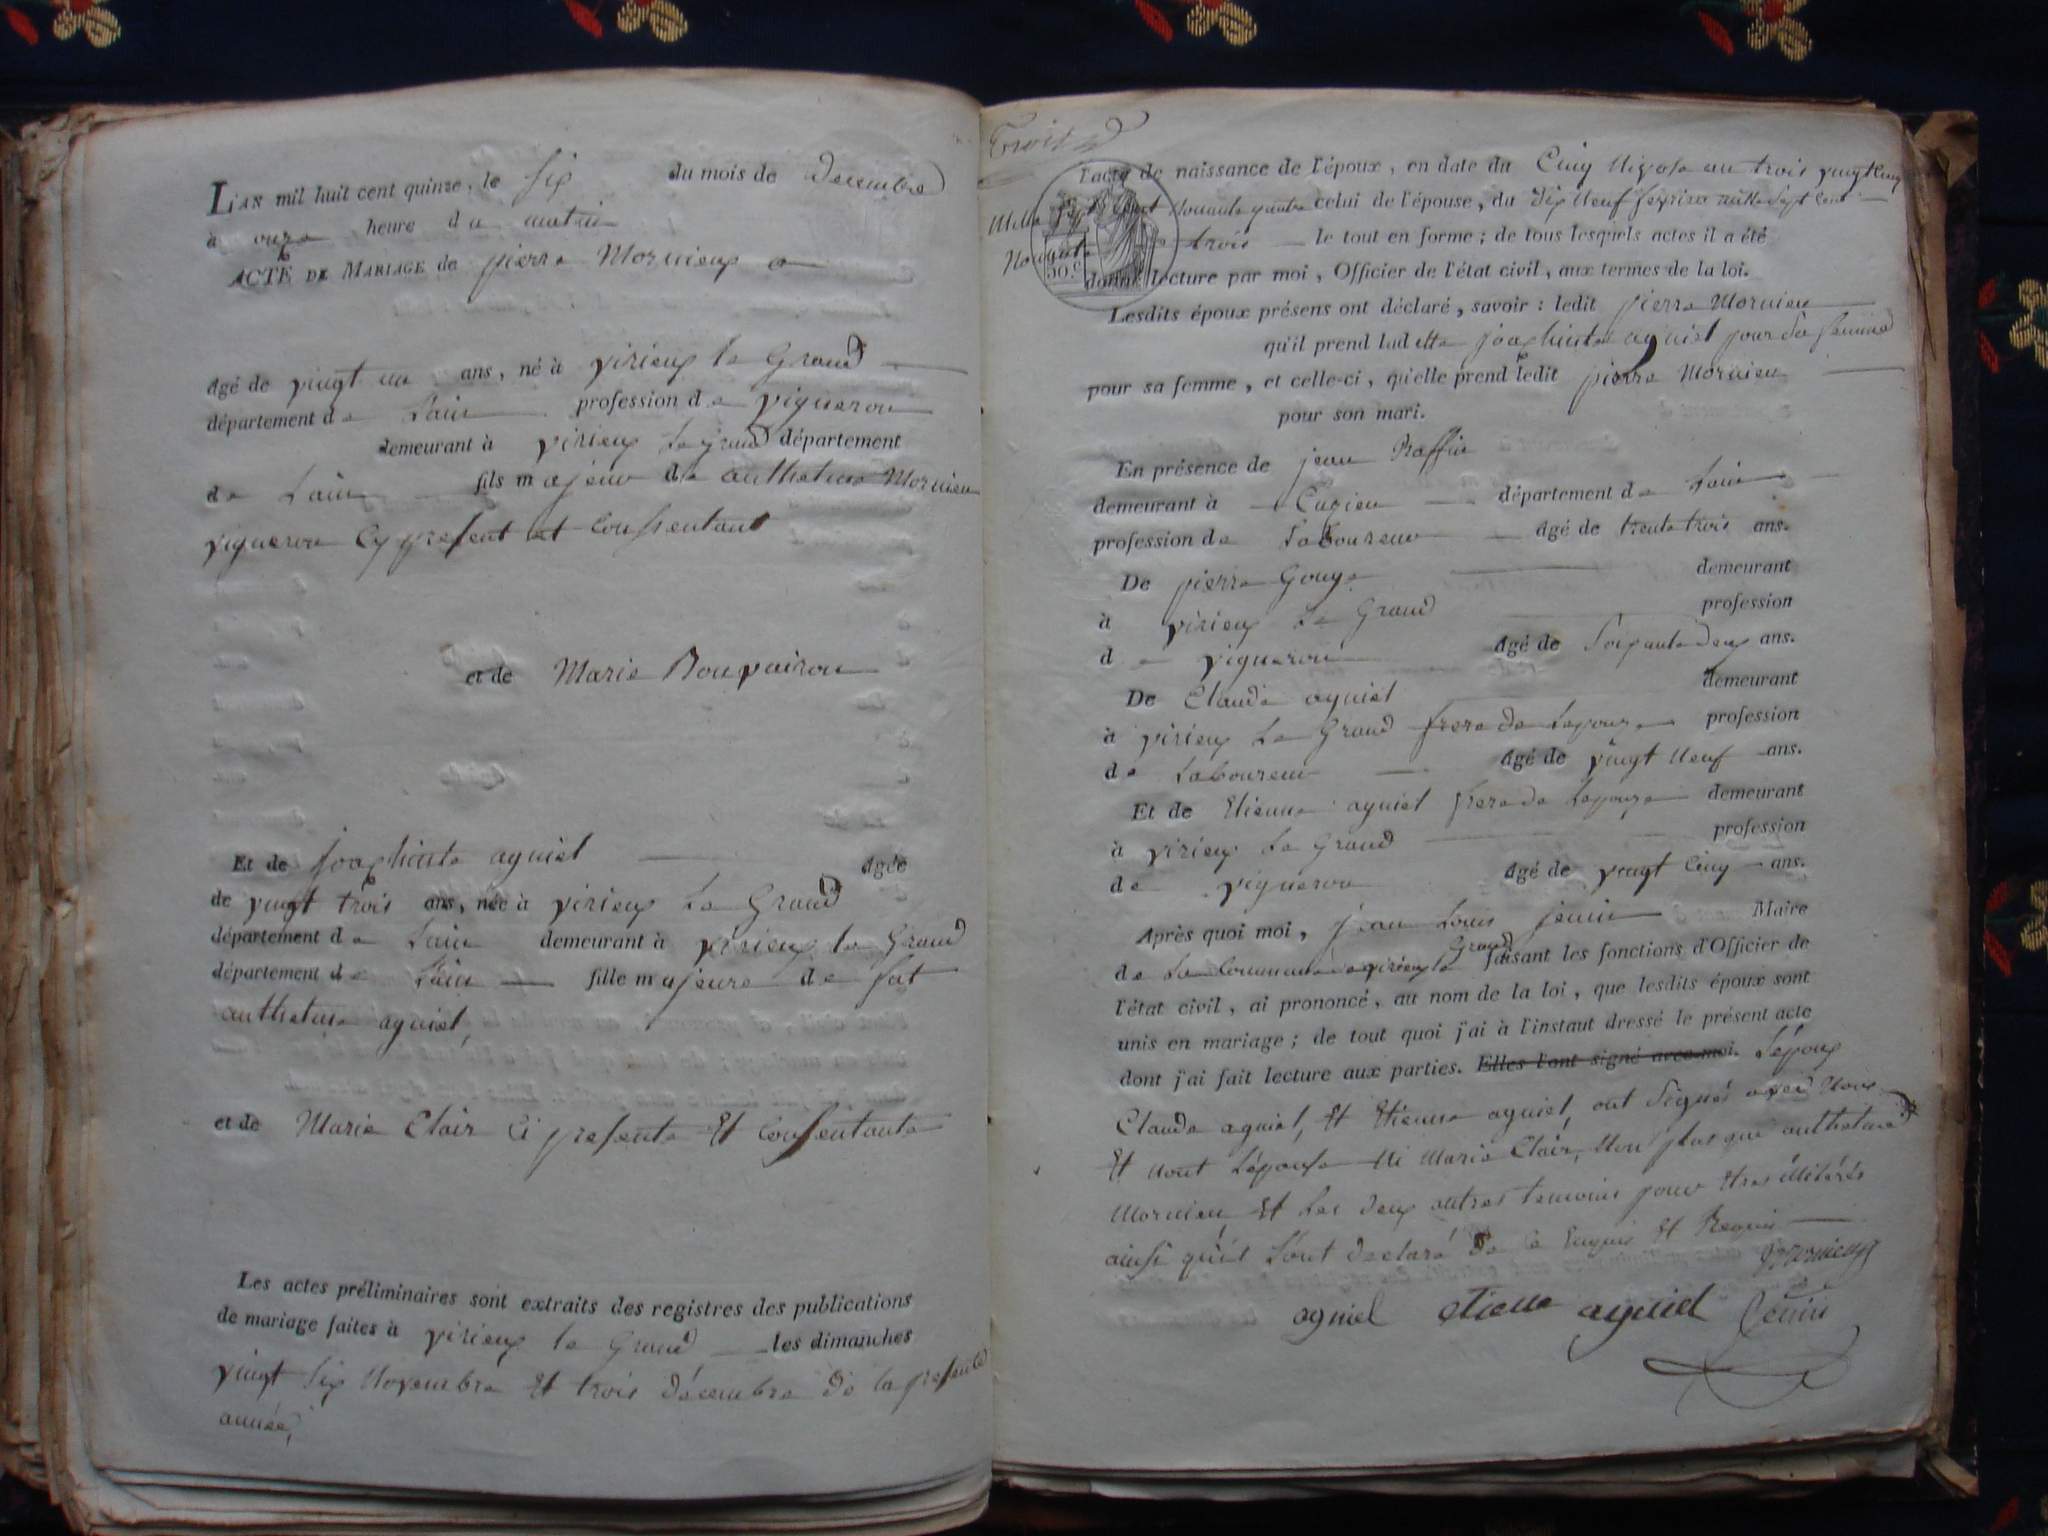 L'AN mil huit cent quinze, le six du mois de Decembre
à onze heure du matin
ACTE DE MARIAGE de pierre Mornieux
Agé de vingt un ans, né à virieux le Grand
département de Lain profession de vigneron
demeurant à virieux le grand département
de Lain fils majeur de anthelme Mornieu
vigneron Cy present et Consentant
et de Marie Bonpairon
Et de joachinte agniel Agée
de vingt trois ans, née à virieux Le Grand
département de Lain demeurant à virieux le Grand
département de Lain fille majeure de fat
anthelme agniel,
et de Marie Clair Ci presente Et Consentante
Les actes préliminaires sont extraits des registres des publications
de mariage faites à virieux le Grand les dimanches
vingt six Novembre Et trois décembre de la presente
année,
Troisd
l'acte de naissance de l'époux, en date du Cinq Nivose an trois vingt cinq
Mille sept Cent Nonante quatre celui de l'épouse, du dix Neuf fevrier mille sept Cent
Nonante trois le tout en forme ; de tous lesquels actes il a été
50.c donné lecture par moi, Officier de l'état civil, aux termes de la loi.
Lesdits époux présens ont déclaré, savoir : ledit pierre Mornieu
qu'il prend ladette joachinte agniel pour sa femme
pour sa femme, et celle-ci, qu'elle prend ledit pierre Mornieu
pour son mari.
En présence de jean Raffin
demeurant à Cuzieu département de Lain
profession de Laboureur Agé de trente trois ans.
De pierre Gouge demeurant
à virieux Le Grand profession
de vigneron Agé de soixante deux ans.
De Claude agniel demeurant
à virieux Le Grand frere de Lepouze profession
de Laboureur Agé de vingt Neuf ans.
Et de Etienne agniel frere de Lepouze demeurant
à virieux Le Grand profession
de vigneron Agé de vingt Cinq ans.
Après quoi moi, jean Louis jenin Maire
de La Commune de virieux le Grand faisant les fonctions d'Officier de
l'état civil, ai prononcé, au nom de la loi, que lesdits époux sont
unis en mariage ; de tout quoi j'ai à l'instant dressé le présent acte
dont j'ai fait lecture aux parties. Elles l'ont signé avec moi. L'époux
Claude agniel, Et Etienne agniel, ont Signés avec Nous
Et Nont L'épouse Ni Marie Clair, Non plus que anthelme
Mornieu Et Les deux autres temoins pour Etres illitérés
ainsi qu'il L'ont declaré de Ce Enquis Et Requis
Mornieux
agniel etiene agniel Jenin